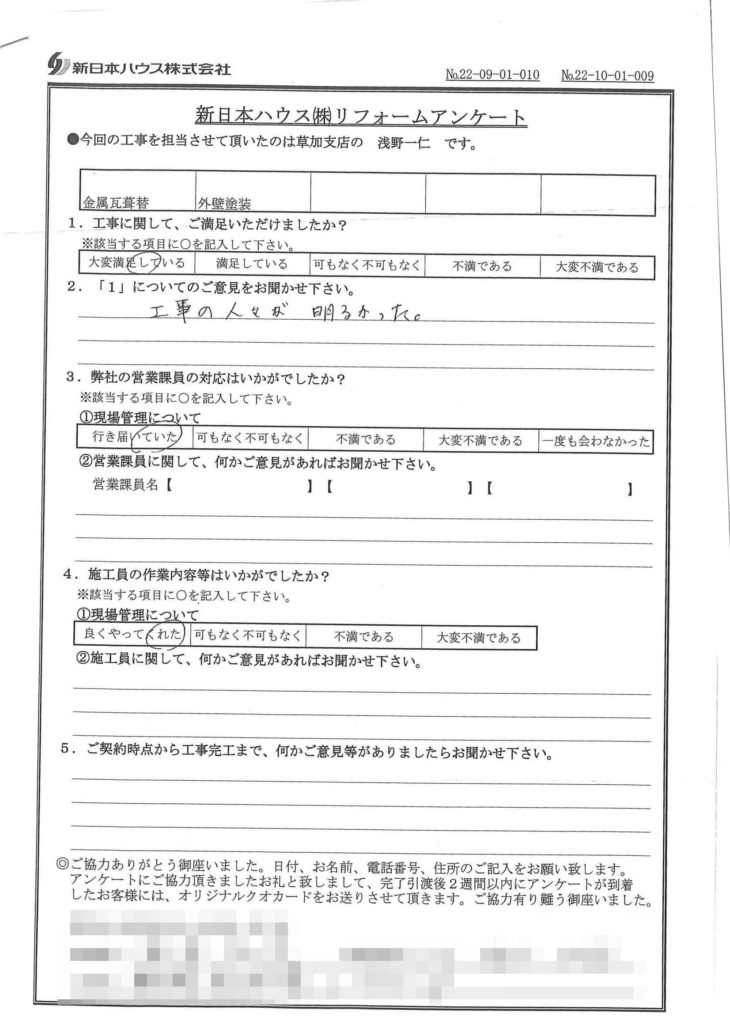 新日本ハウス株式会社
№22-09-01-010 №22-10-01-009
新日本ハウス㈱リフォームアンケート
●今回の工事を担当させて頂いたのは草加支店の 浅野一仁 です。
金属瓦葺替 外壁塗装
1．工事に関して、ご満足いただけましたか？
※該当する項目に○を記入して下さい。
大変満足している 満足している 可もなく不可もなく 不満である 大変不満である
2．「1」についてのご意見をお聞かせ下さい。
工事の人々が 明るかった。
3．弊社の営業課員の対応はいかがでしたか？
※該当する項目に○を記入して下さい。
①現場管理について
行き届いていた 可もなく不可もなく 不満である 大変不満である 一度も会わなかった
②営業課員に関して、何かご意見があればお聞かせ下さい。
営業課員名【 】【 】【 】
4．施工員の作業内容等はいかがでしたか？
※該当する項目に○を記入して下さい。
①現場管理について
良くやってくれた 可もなく不可もなく 不満である 大変不満である
②施工員に関して、何かご意見があればお聞かせ下さい。
5．ご契約時点から工事完工まで、何かご意見等がありましたらお聞かせ下さい。
◎ご協力ありがとう御座いました。日付、お名前、電話番号、住所のご記入をお願い致します。
アンケートにご協力頂きましたお礼と致しまして、完了引渡後2週間以内にアンケートが到着
したお客様には、オリジナルクオカードをお送りさせて頂きます。ご協力有り難う御座いました。